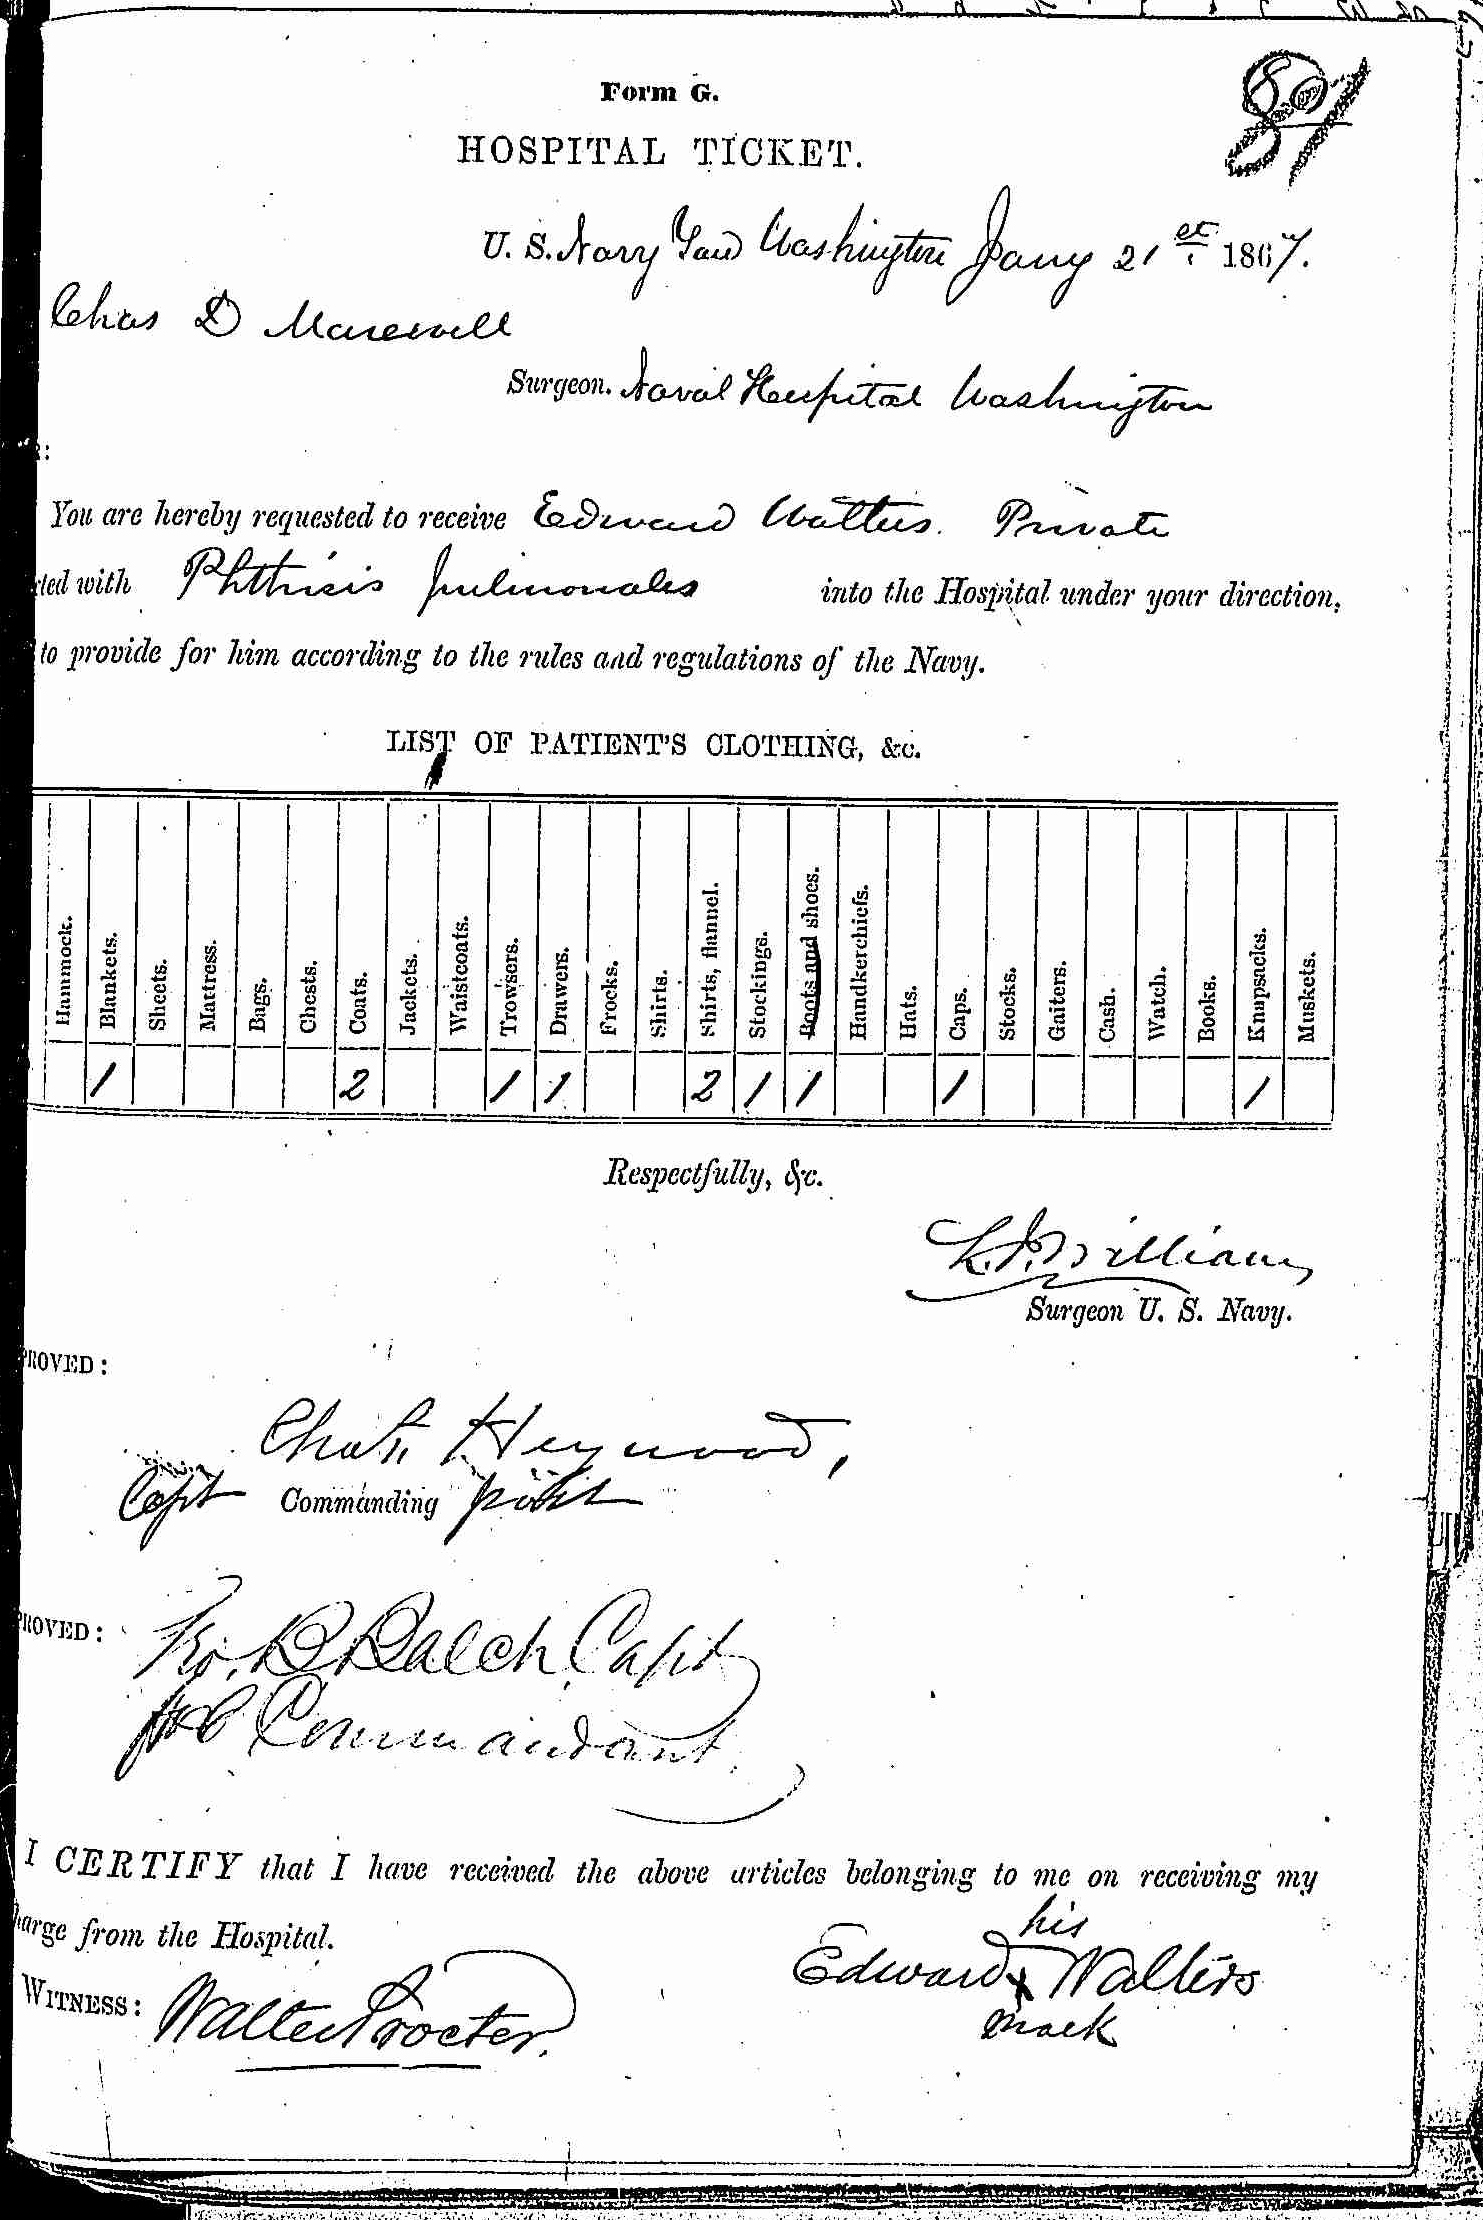 Form G.
HOSPITAL TICKET.
U. S. Navy Yard Washington Jany 21st 1867.
Chas D Maxwell
Surgeon. Naval Hospital Washington
R:
You are hereby requested to receive Edward Walters. Private
ted with Phthisis pulmonales into the Hospital under your direction,
to provide for him according to the rules and regulations of the Navy.
LIST OF PATIENT'S CLOTHING, &c.
Hammock. Blankets. Sheets. Mattress. Bags. Chests. Coats. Jackets. Waistcoats. Trowsers. Drawers. Frocks. Shirts. Shirts, flannel. Stockings. Boots and shoes. Handkerchiefs. Hats. Caps. Stocks. Gaiters. Cash. Watch. Books. Knapsacks. Muskets.
1 2 1 1 2 1 1 1 1
Respectfully, &c.
Williams
Surgeon U. S. Navy.
PROVED:
Chas. Heywood,
Capt Commanding post
PROVED:
B Balch Capt
for Commandant.
I CERTIFY that I have received the above articles belonging to me on receiving my
harge from the Hospital.
his
Edward x Walters
mark
WITNESS: Walter Procter.